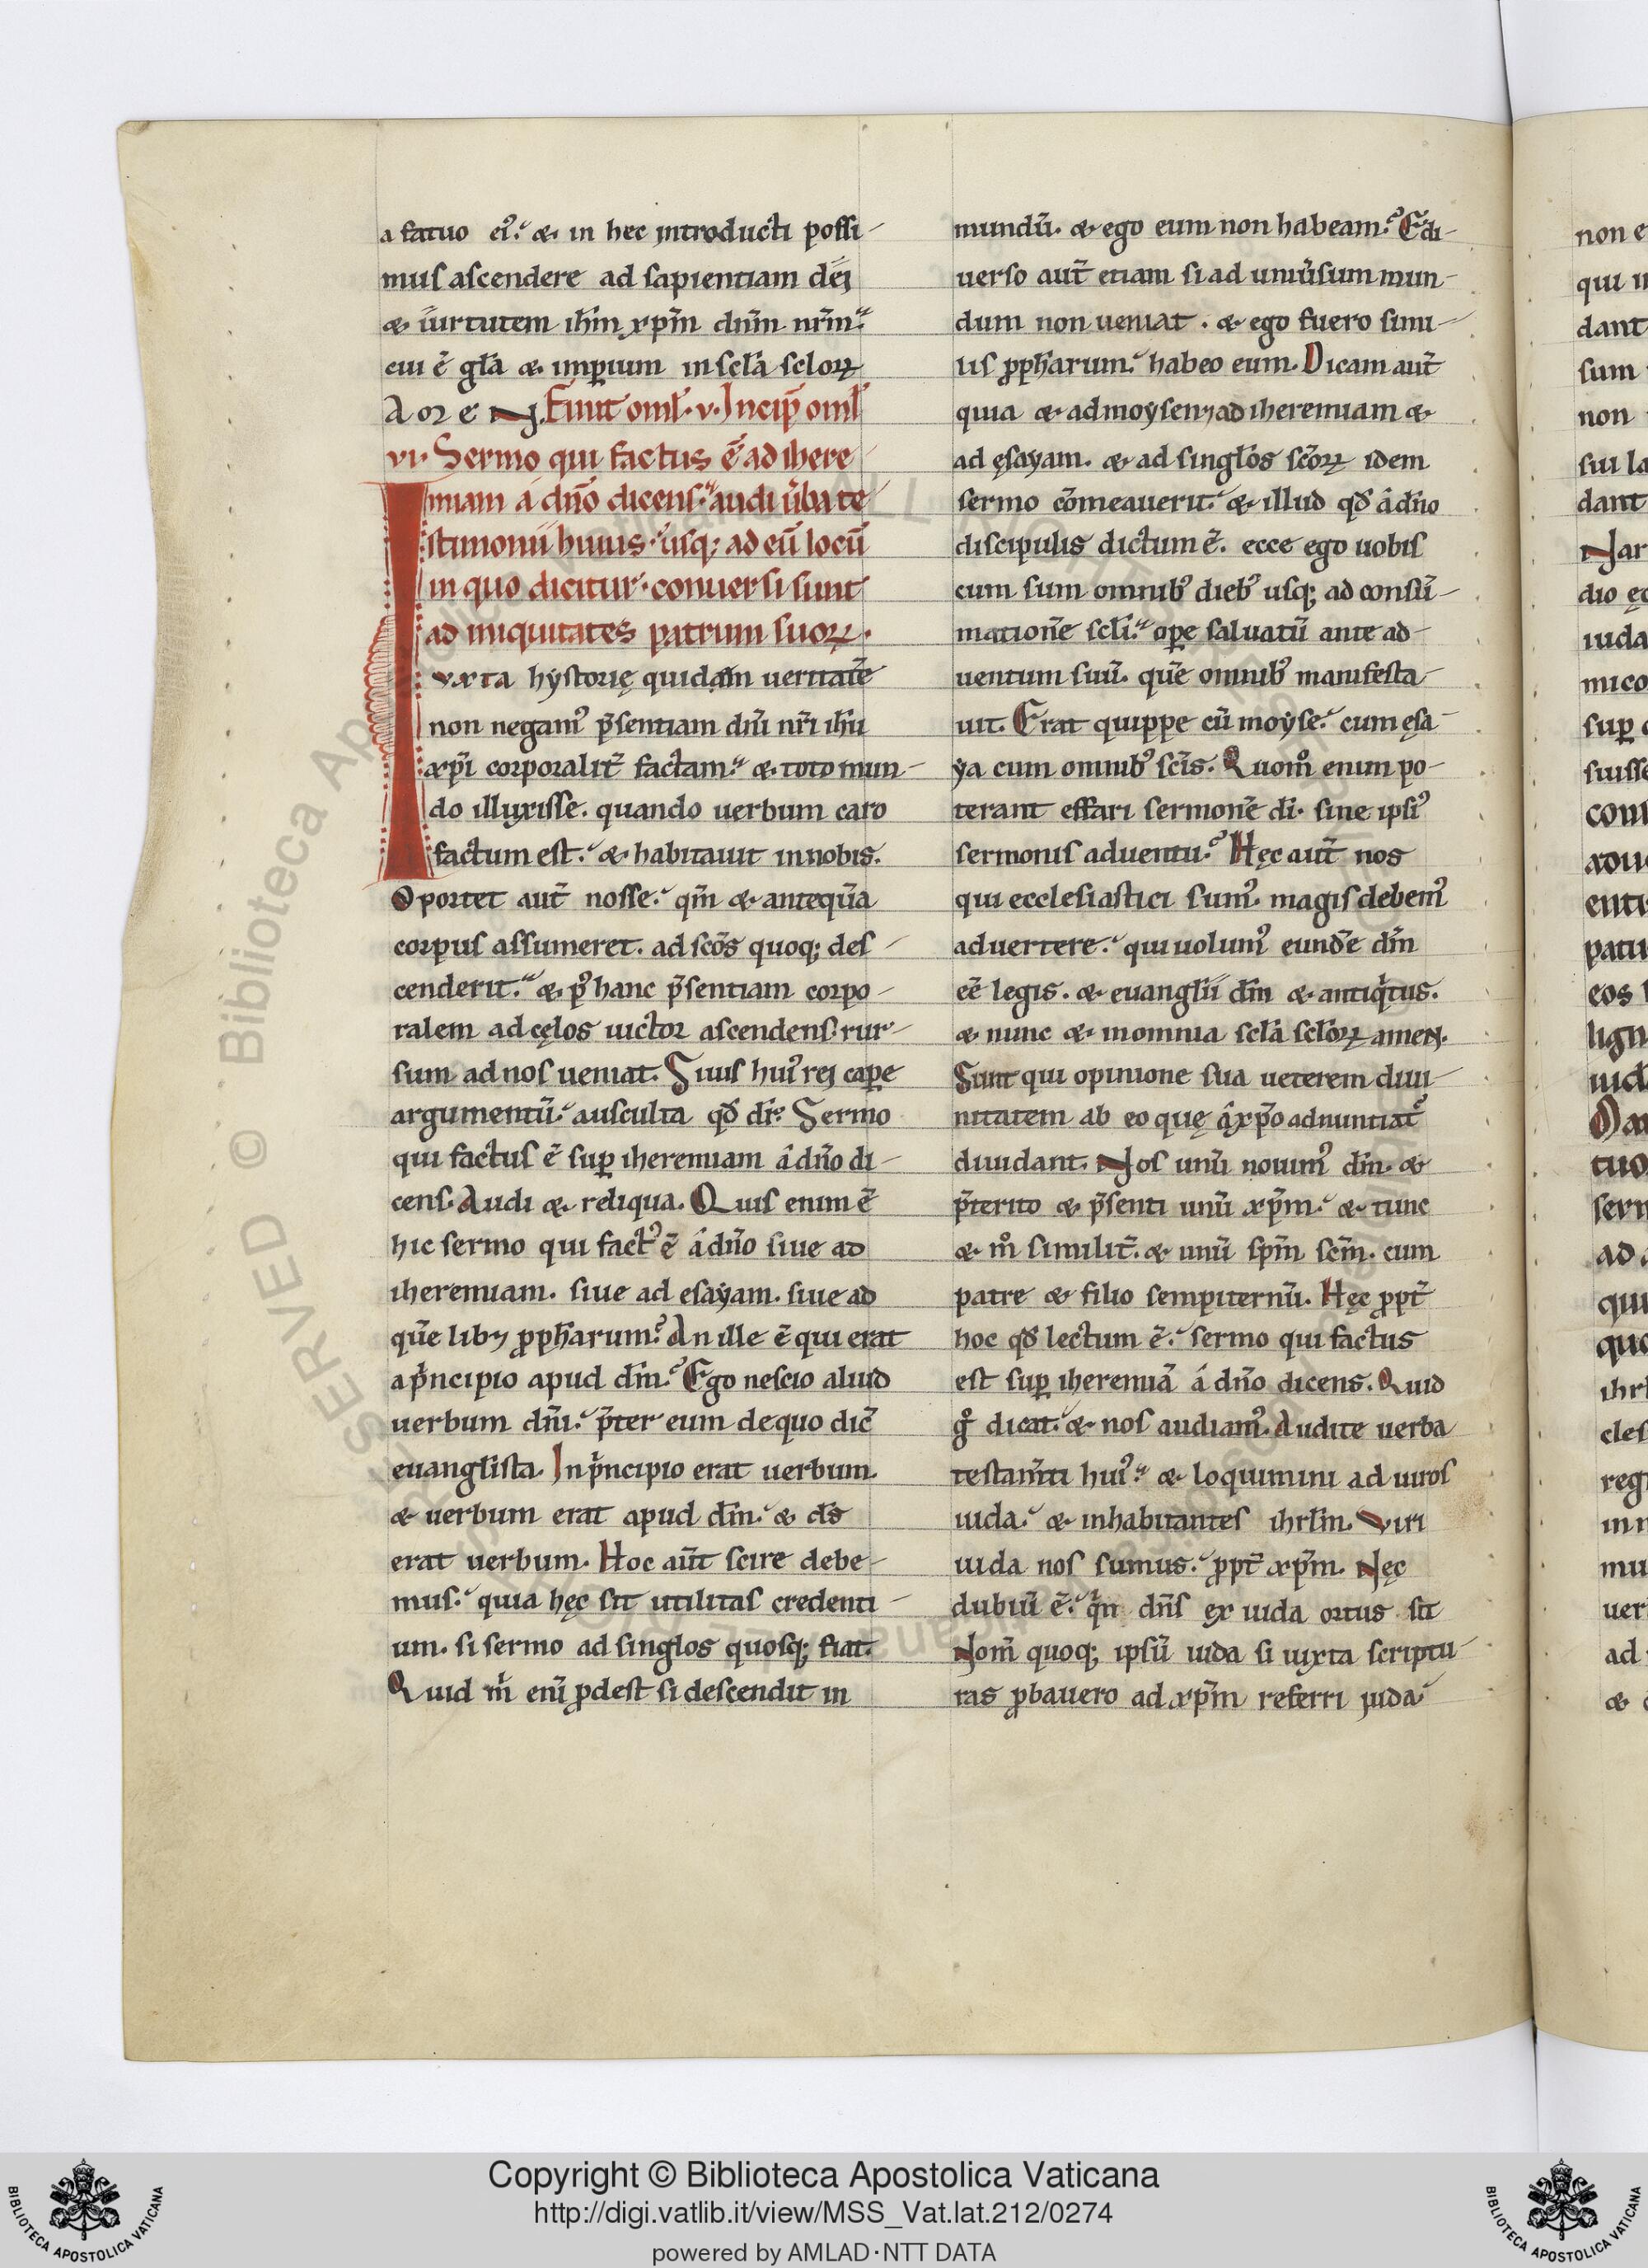 a fatuo ei᷒. & in hec introducti possi-
mus ascendere ad sapientiam dei
& uirtutem ihm̄ xp̄m dn̄m nr̄m.
cui ē gła & imp̄ium in scła scloꝝ
AmeN. Finit omł. v. Incip̄ omł
vi. Sermo qui factus ē ad ihere
miam á dn̄o dicens. audi ūba te
stimonii huius. usq; ad eū locū
in quo dicitur. conuersi sunt
ad iniquitates patrum suoꝝ.
Iuxta hystorię quidam ueritatē
non negam᷒ p̄sentiam dn̄i nr̄i ihū
xp̄i corporalit̄ factam. & toto mun-
do illuxisse. quando uerbum caro
factum est. & habitauit in nobis.
Oportet aut̄ nosse. qm̄ & anteq̄a
corpus assumeret. ad sc̄os quoq; des-
cenderit. & p᷒ hanc p̄sentiam corpo-
ralem ad cęlos uictor ascendens. rur-
sum ad nos ueniat. Siuis hui᷒ rei cape
argumentū. ausculta qđ dr̄. Sermo
qui factus ē sup iheremiam á dn̄o di-
cens. Audi & reliqua. Quis enim ē
hic sermo qui fact᷒ ē á dn̄o siue ad
iheremiam. siue ad esayam. siue ad
quē lib; ꝓpħarum? An ille ē qui erat
a pͥncipio apud dm̄? Ego nescio aliud
uerbum dn̄i. p̄ter eum de quo dic̄
euanglista. In pͥncipio erat uerbum.
& uerbum erat apud dm̄. & ds̄
erat uerbum. Hoc aūt scire debe-
mus. quia hęc sit utilitas credenti-
um. si sermo ad singlos quosq; fiat.
Quid mͥ enī ꝓdest si descendit in
mundū. & ego eum non habeam? E di-
uerso aut̄ etiam si ad uniūsum mun-
dum non ueniat. & ego fuero simi-
lis ꝓpħarum. habeo eum. Dicam aut̄
quia & ad moysen, ad iheremiam &
ad ęsayam. & ad singłos sc̄oꝝ idem
sermo cōmeauerit. & illud qđ á dn̄o
discipulis dictum ē. ecce ego uobis
cum sum omnib᷒ dieb᷒ usq; ad consū-
mationē scłi. ope saluatū ante ad-
uentum suū. quē omnib᷒ manifesta-
uit. Erat quippe cū moyse. cum ęsa-
ya cum omnib᷒ sc̄is. Quom̊ enim po-
terant effari sermonē di̅. sine ipsi᷒
sermonis aduentu? Hęc aut̄ nos
qui ecclesiastici sum᷒. magis debem᷒
aduertere. qui uolum᷒ eundē dm̄
eē legis. & euanglii dm̄ & antiqͥtus.
& nunc & in omnia scła scłoꝝ ameN.
Sunt qui opinione sua ueterem diui-
nitatem ab eo quę á xp̄o adnuntiat᷒
diuidant. Nos unū nouim᷒ dm̄. &
p̄terito & p̄senti unū xp̄m. & tunc
& m̊ similit̄. & unū spm̄ sc̄m. cum
patre & filio sempiternū. Hęc ꝓpt̄
hoc qđ lectum ē. sermo qui factus
est sup iheremiā á dn̄o dicens. Quid
g̊ dicat. & nos audiam᷒. Audite uerba
testam̄ti hui᷒. & loquimini ad uiros
iuda. & inhabitantes ihrłm. Viri
iuda nos sumus. ꝓpt̄ xp̄m. Nęc
dubiū ē. qͥn dn̄s ex iuda ortus sit
Nom̄ quoq; ipsū iuda si iuxta scriptu-
ras ꝓbauero ad xp̄m referri iuda
Copyright © Biblioteca Apostolica Vaticana
http://digi.vatlib.it/view/MSS_Vat.lat.212/0274
powered by AMLAD·NTT DATA
BIBLIOTECA APOSTOLICA VATICANA
BIBLIOTECA APOSTOLICA VATICANA